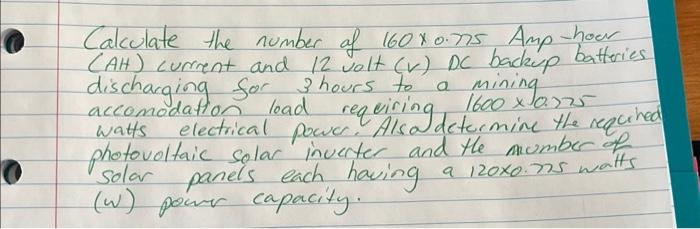 Calculate the number of 160 x 0.775 Amp-hour
(AH) current and 12 volt (v) DC backup batteries
discharging for 3 hours to a mining
accomodation load requiring 1600 x 0.775
watts electrical power. Also determine the required
photovoltaic solar inverter and the number of
solar panels each having a 120x0.775 watts
(W) power capacity.